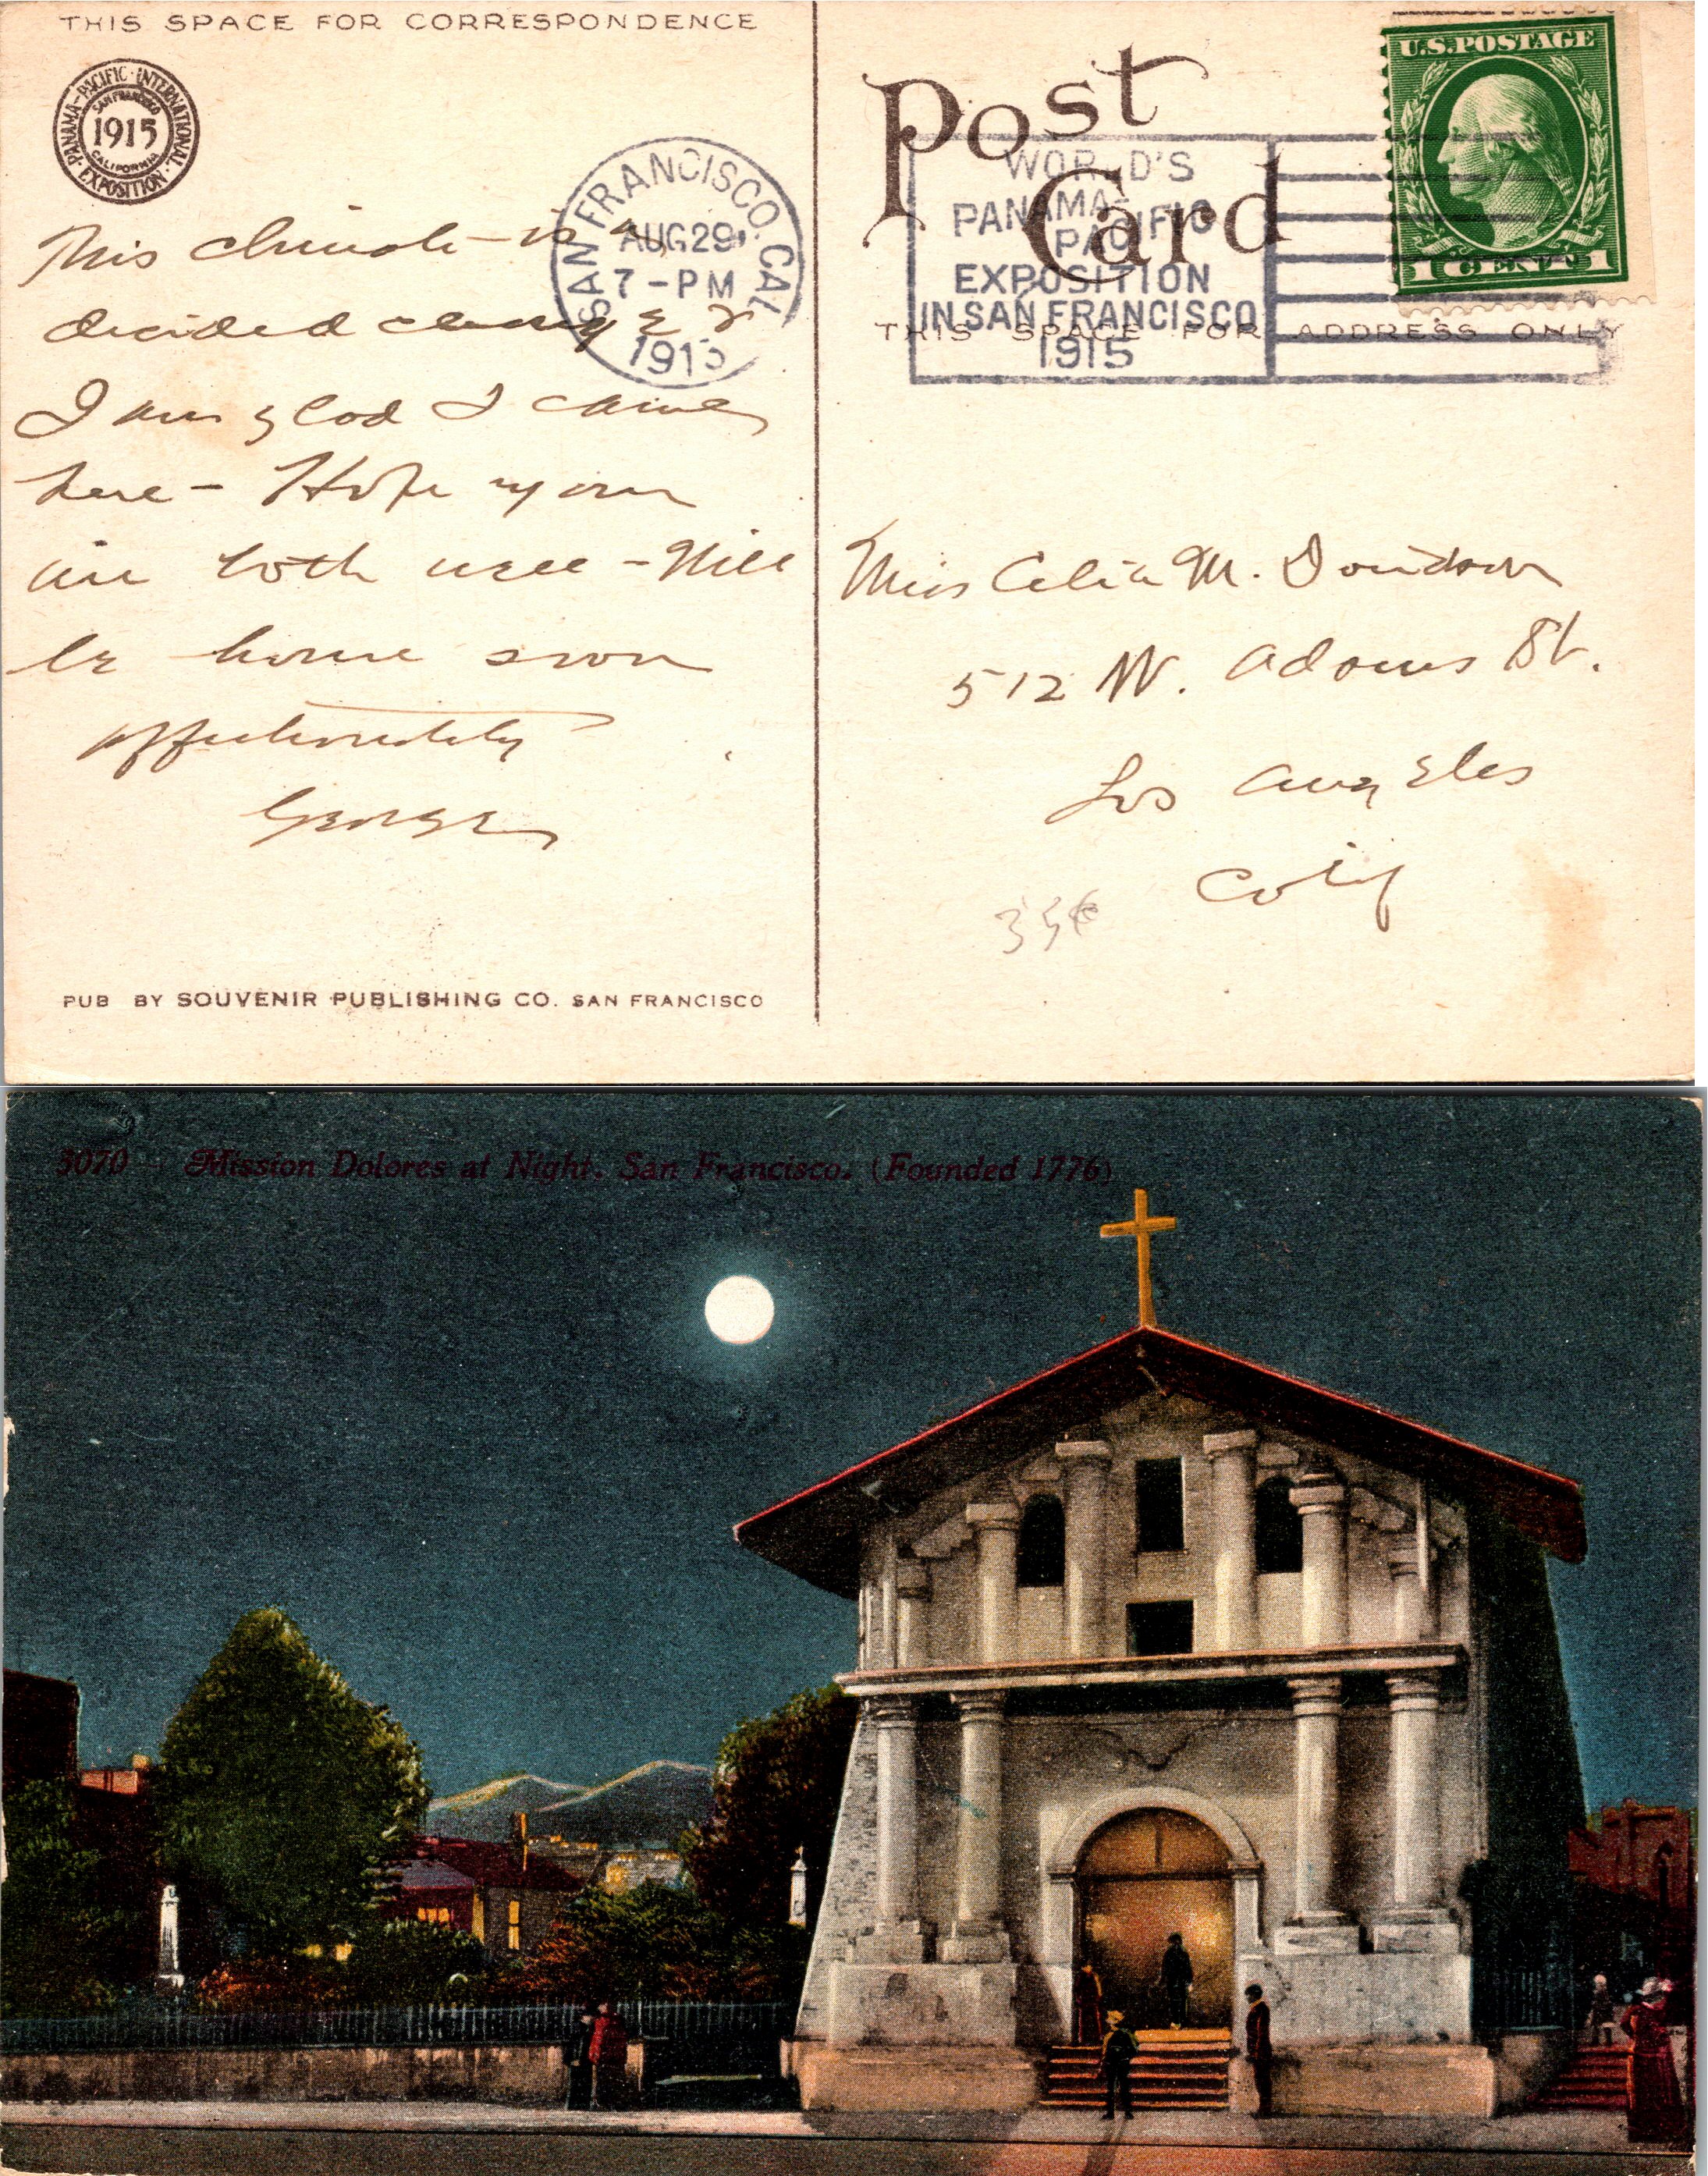 THIS SPACE FOR CORRESPONDENCE
PANAMA-PACIFIC·INTERNATIONAL·EXPOSITION·
SAN FRANCISCO
1915
CALIFORNIA
This climate is a
decided change &
I am glad I came
here - Hope you
are both well - Will
be home soon
affectionately
George
PUB BY SOUVENIR PUBLISHING CO. SAN FRANCISCO
SAN FRANCISCO, CAL.
AUG 29
7-PM
1915
Post Card
WORLD'S
PANAMA-
PACIFIC
EXPOSITION
IN SAN FRANCISCO
1915
U.S. POSTAGE
1 CENT 1
THIS SPACE FOR ADDRESS ONLY
Miss Celia M. Davidson
512 W. Adams St.
Los Angeles
Calif
35¢
3070 - Mission Dolores at Night, San Francisco. (Founded 1776)